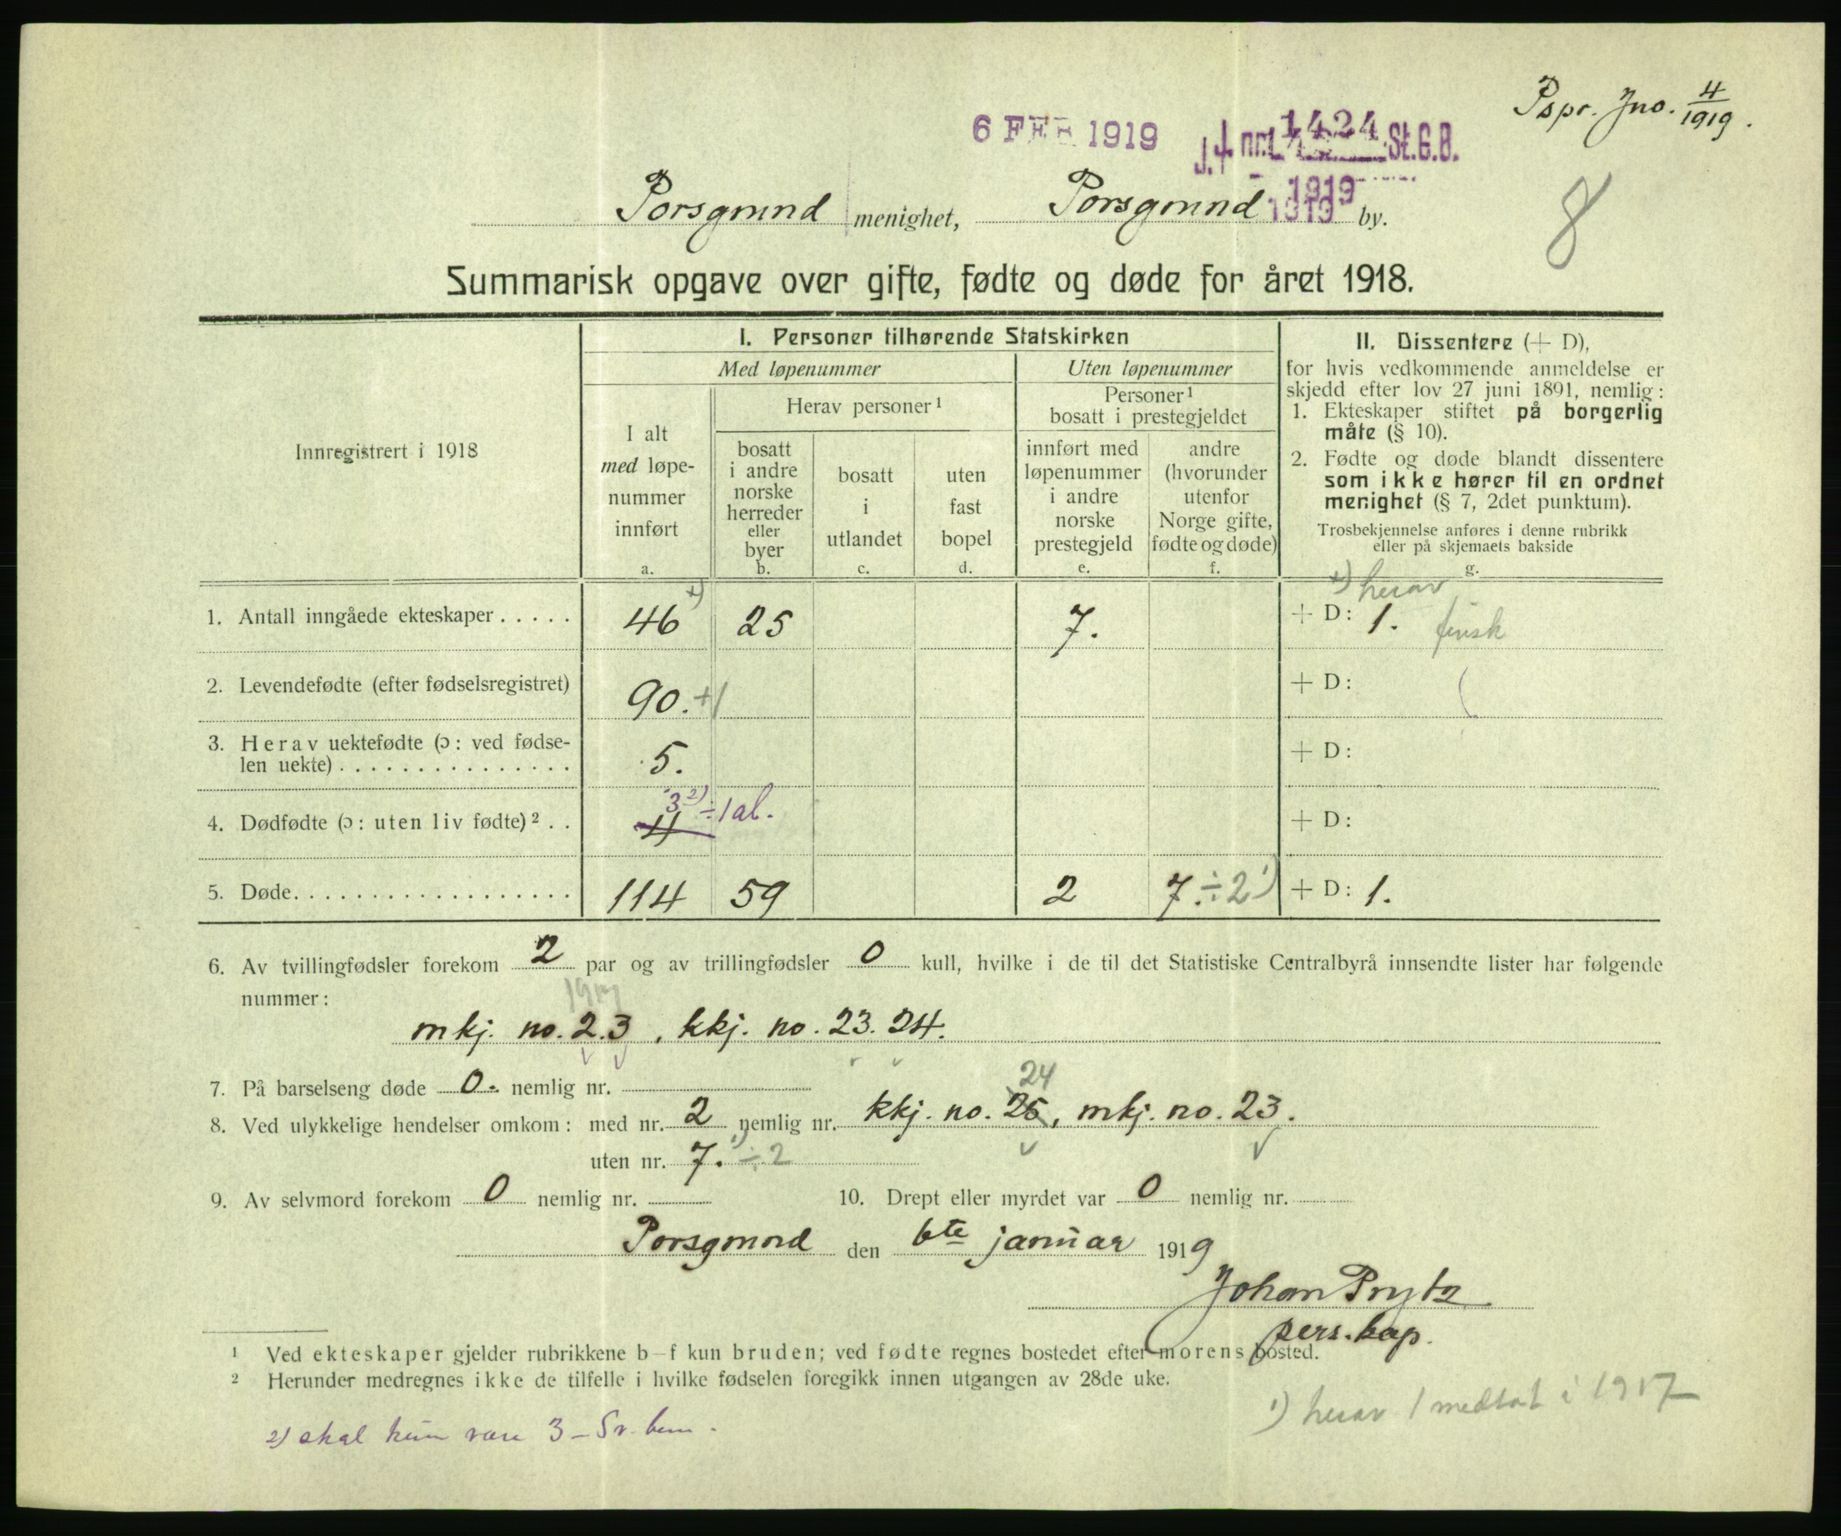 Pspr. Jno. 4/1919.
6 FEB 1919
J. nr. 1424 St.C.B.
1919
8
Porsgrund menighet, Porsgrund by.
Summarisk opgave over gifte, fødte og døde for året 1918.
Innregistrert i 1918
I. Personer tilhørende Statskirken
Med løpenummer
Uten løpenummer
I alt med løpe-nummer innført
a.
Herav personer¹
bosatt i andre norske herreder eller byer
b.
bosatt i utlandet
c.
uten fast bopel
d.
Personer¹ bosatt i prestegjeldet
innført med løpenummer i andre norske prestegjeld
e.
andre (hvorunder utenfor Norge gifte, fødte og døde)
f.
II. Dissentere (+ D),
for hvis vedkommende anmeldelse er
skjedd efter lov 27 juni 1891, nemlig:
1. Ekteskaper stiftet på borgerlig
måte (§ 10).
2. Fødte og døde blandt dissentere
som ikke hører til en ordnet
menighet (§ 7, 2det punktum).
Trosbekjennelse anføres i denne rubrikk
eller på skjemaets bakside
g.
x) herav
1. Antall inngåede ekteskaper . . . . . 46 x) 25 7. + D: 1. finsk
2. Levendefødte (efter fødselsregistret) 90. +1 + D:
3. Herav uektefødte (ɔ: ved fødse-
len uekte) . . . . . . . . . . . . . . . 5. + D:
3 2) ÷ 1 al.
4. Dødfødte (ɔ: uten liv fødte) ² . . 4 + D:
5. Døde. . . . . . . . . . . . . . . . . . 114 59 2 7. ÷2 1) + D: 1.
6. Av tvillingfødsler forekom 2 par og av trillingfødsler 0 kull, hvilke i de til det Statistiske Centralbyrå innsendte lister har følgende
nummer:
1917
mkj. no. 2.3, kkj. no. 23. 24.
7. På barselseng døde 0. nemlig nr.
24
8. Ved ulykkelige hendelser omkom: med nr. 2 nemlig nr. kkj. no. 25, mkj. no. 23.
uten nr. 7. 1) ÷ 2
9. Av selvmord forekom 0 nemlig nr. 10. Drept eller myrdet var 0 nemlig nr.
Porsgrund den 6te januar 1919
Johan Prytz
pers. kap.
¹ Ved ekteskaper gjelder rubrikkene b–f kun bruden; ved fødte regnes bostedet efter morens bosted.
² Herunder medregnes ikke de tilfelle i hvilke fødselen foregikk innen utgangen av 28de uke.
1) herav 1 medtat i 1917
2) skal kun være 3 – Sv. bem.